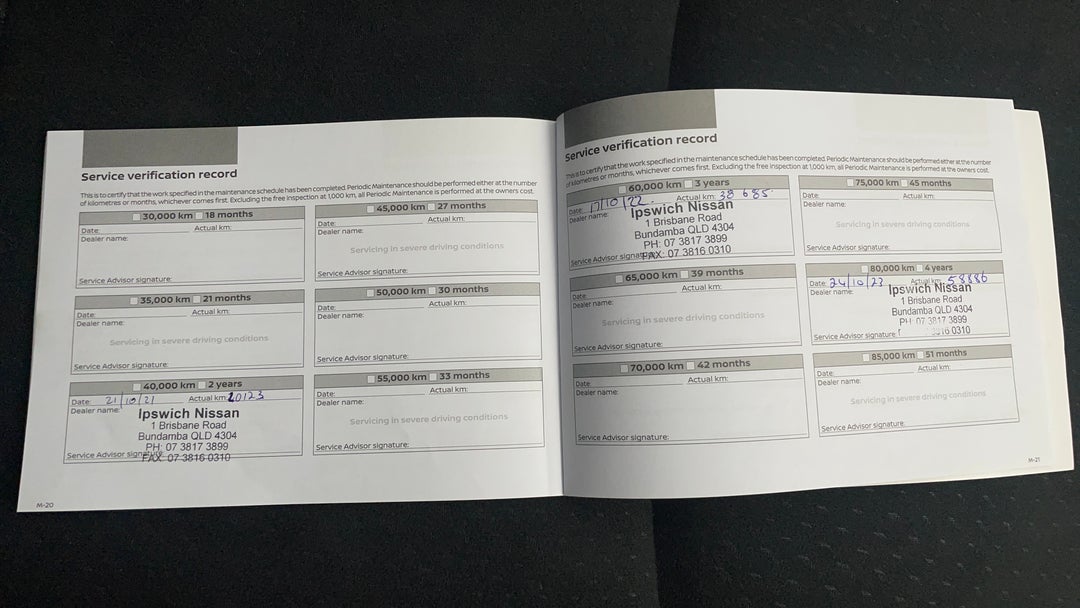 Service verification record
This is to certify that the work specified in the maintenance schedule has been completed. Periodic Maintenance should be performed either at the number
of kilometres or months, whichever comes first. Excluding the free inspection at 1,000 km, all Periodic Maintenance is performed at the owners cost.
30,000 km 18 months
Date: Actual km:
Dealer name:
Service Advisor signature:
35,000 km 21 months
Date: Actual km:
Dealer name:
Servicing in severe driving conditions
Service Advisor signature:
40,000 km 2 years
Date: 21/10/21 Actual km: 20123
Dealer name:
Ipswich Nissan
1 Brisbane Road
Bundamba QLD 4304
PH: 07 3817 3899
Service Advisor signature:
FAX: 07 3816 0310
45,000 km 27 months
Date: Actual km:
Dealer name:
Servicing in severe driving conditions
Service Advisor signature:
50,000 km 30 months
Date: Actual km:
Dealer name:
Service Advisor signature:
55,000 km 33 months
Date: Actual km:
Dealer name:
Servicing in severe driving conditions
Service Advisor signature:
M-20
Service verification record
This is to certify that the work specified in the maintenance schedule has been completed. Periodic Maintenance should be performed either at the number
of kilometres or months, whichever comes first. Excluding the free inspection at 1,000 km, all Periodic Maintenance is performed at the owners cost.
60,000 km 3 years
Date: 17/10/22. Actual km: 38 685
Dealer name:
Ipswich Nissan
1 Brisbane Road
Bundamba QLD 4304
PH: 07 3817 3899
Service Advisor signature:
FAX: 07 3816 0310
65,000 km 39 months
Date: Actual km:
Dealer name:
Servicing in severe driving conditions
Service Advisor signature:
70,000 km 42 months
Date: Actual km:
Dealer name:
Service Advisor signature:
75,000 km 45 months
Date: Actual km:
Dealer name:
Servicing in severe driving conditions
Service Advisor signature:
80,000 km 4 years
Date: 24/10/23 Actual km: 58886
Dealer name:
Ipswich Nissan
1 Brisbane Road
Bundamba QLD 4304
PH: 07 3817 3899
Service Advisor signature
0310
85,000 km 51 months
Date: Actual km:
Dealer name:
Servicing in severe driving conditions
Service Advisor signature:
M-21